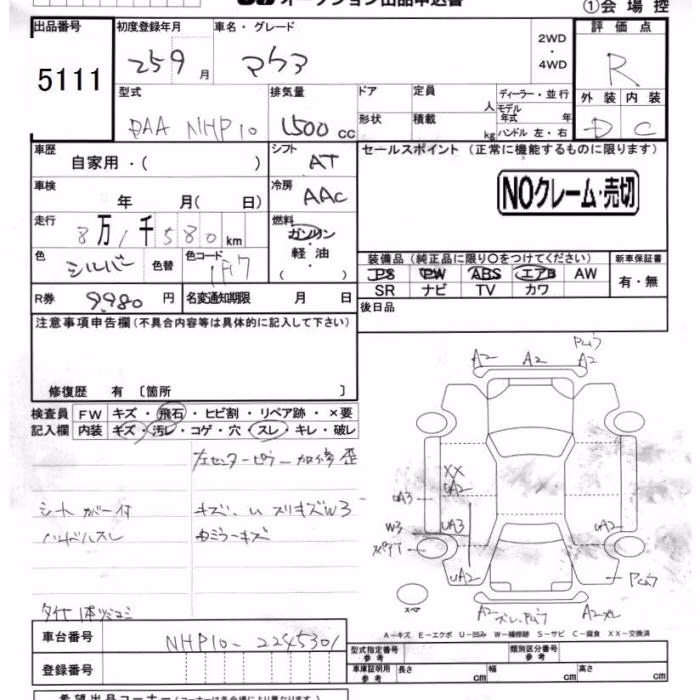 オークション出品申込書 ①会場控
出品番号 初度登録年月 車名・グレード 評価点
5111 25 9 月 アクア 2WD・4WD R
型式 排気量 ドア 定員 人 ディーラー・並行 外装 内装
DAA NHP10 1500 cc 形状 積載 kg モデル年式 年 ハンドル 左・右 D C
車歴 自家用・( ) シフト AT セールスポイント (正常に機能するものに限ります)
車検 年 月( 日) 冷房 AAC NOクレーム・売切
走行 8万1千580km 燃料 ガソリン
軽油
・( )
色 シルバー 色替 色コード 1F7 装備品 (純正品に限り〇をつけてください) 新車保証書
PS PW ABS エアB AW 有・無
R券 9980 円 名変通知期限 月 日 SR ナビ TV カワ
注意事項申告欄(不具合内容等は具体的に記入して下さい) 後日品
修復歴 有 〔箇所 〕
検査員 FW キズ・飛石・ヒビ割・リペア跡・×要
記入欄 内装 キズ・汚レ・コゲ・穴・スレ・キレ・破レ
左センターピラー加修歪
シートカバー付 キズ、U スリキズW3
ハンドルスレ
A2 A2 A2
XX
UA2
UA3 UA3 UA2
W3
UA2
スペア A2 A2
A-キズ E-エクボ U-凹み W-補修跡 S-サビ C-腐食 XX-交換済
車台番号 NHP10-2245301 型式指定番号 参考 類別区分番号 参考
登録番号 車庫証明用 参考 長さ cm 幅 cm 高さ cm
希望出品コーナー